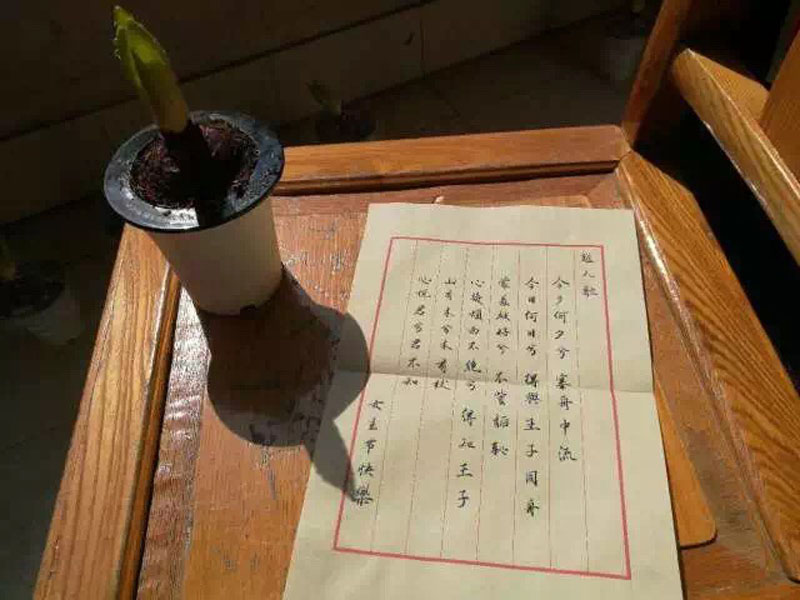 越人歌
今夕何夕兮 搴舟中流
今日何日兮 得與王子同舟
蒙羞被好兮 不訾詬恥
心幾煩而不絕兮 得知王子
山有木兮木有枝
心悅君兮君不知
女生节快樂